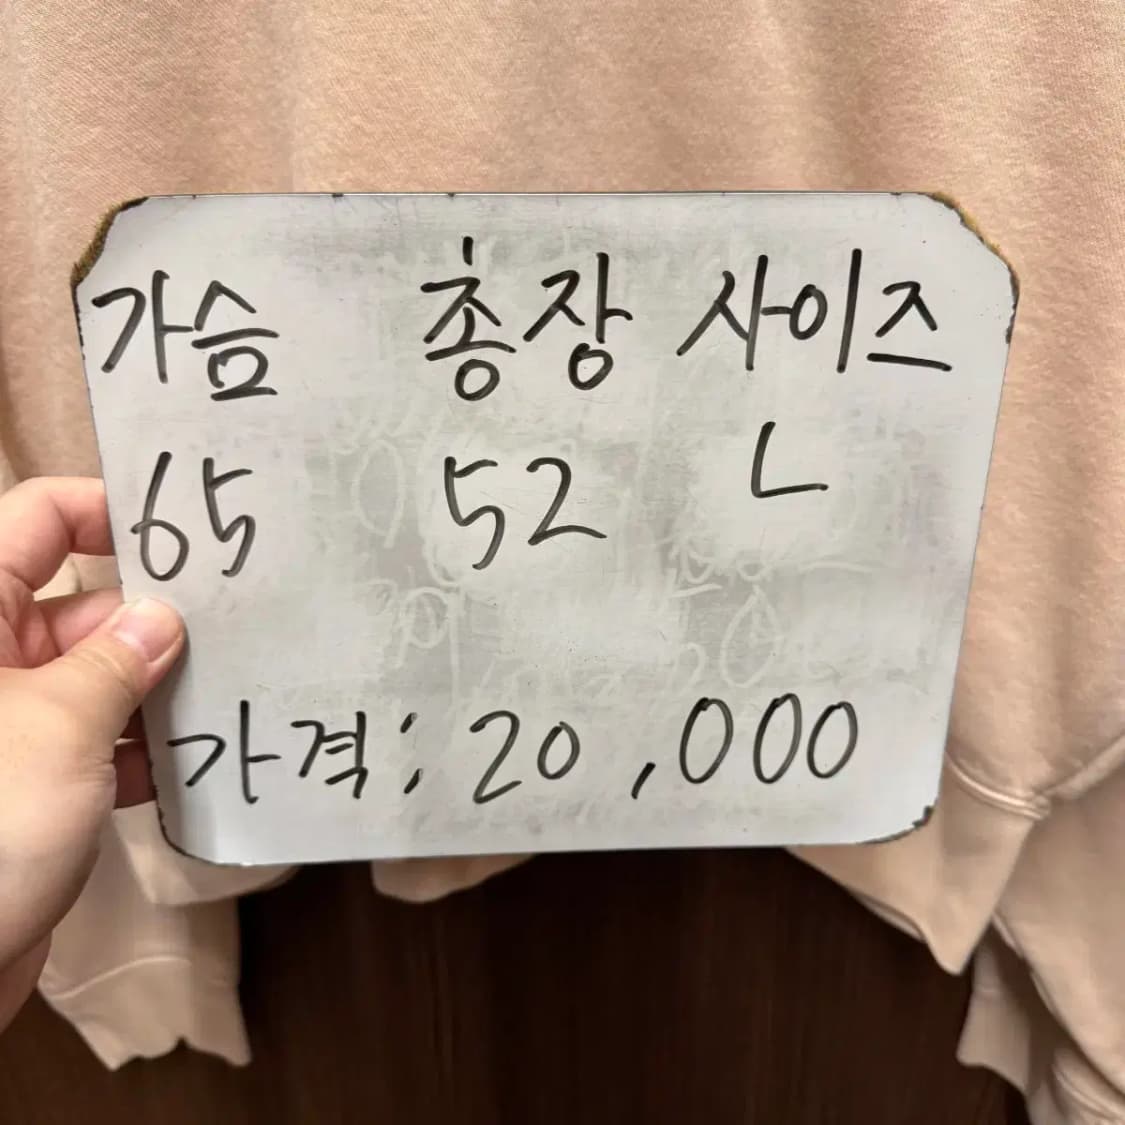 가슴 총장 사이즈
65 52 L
가격: 20,000